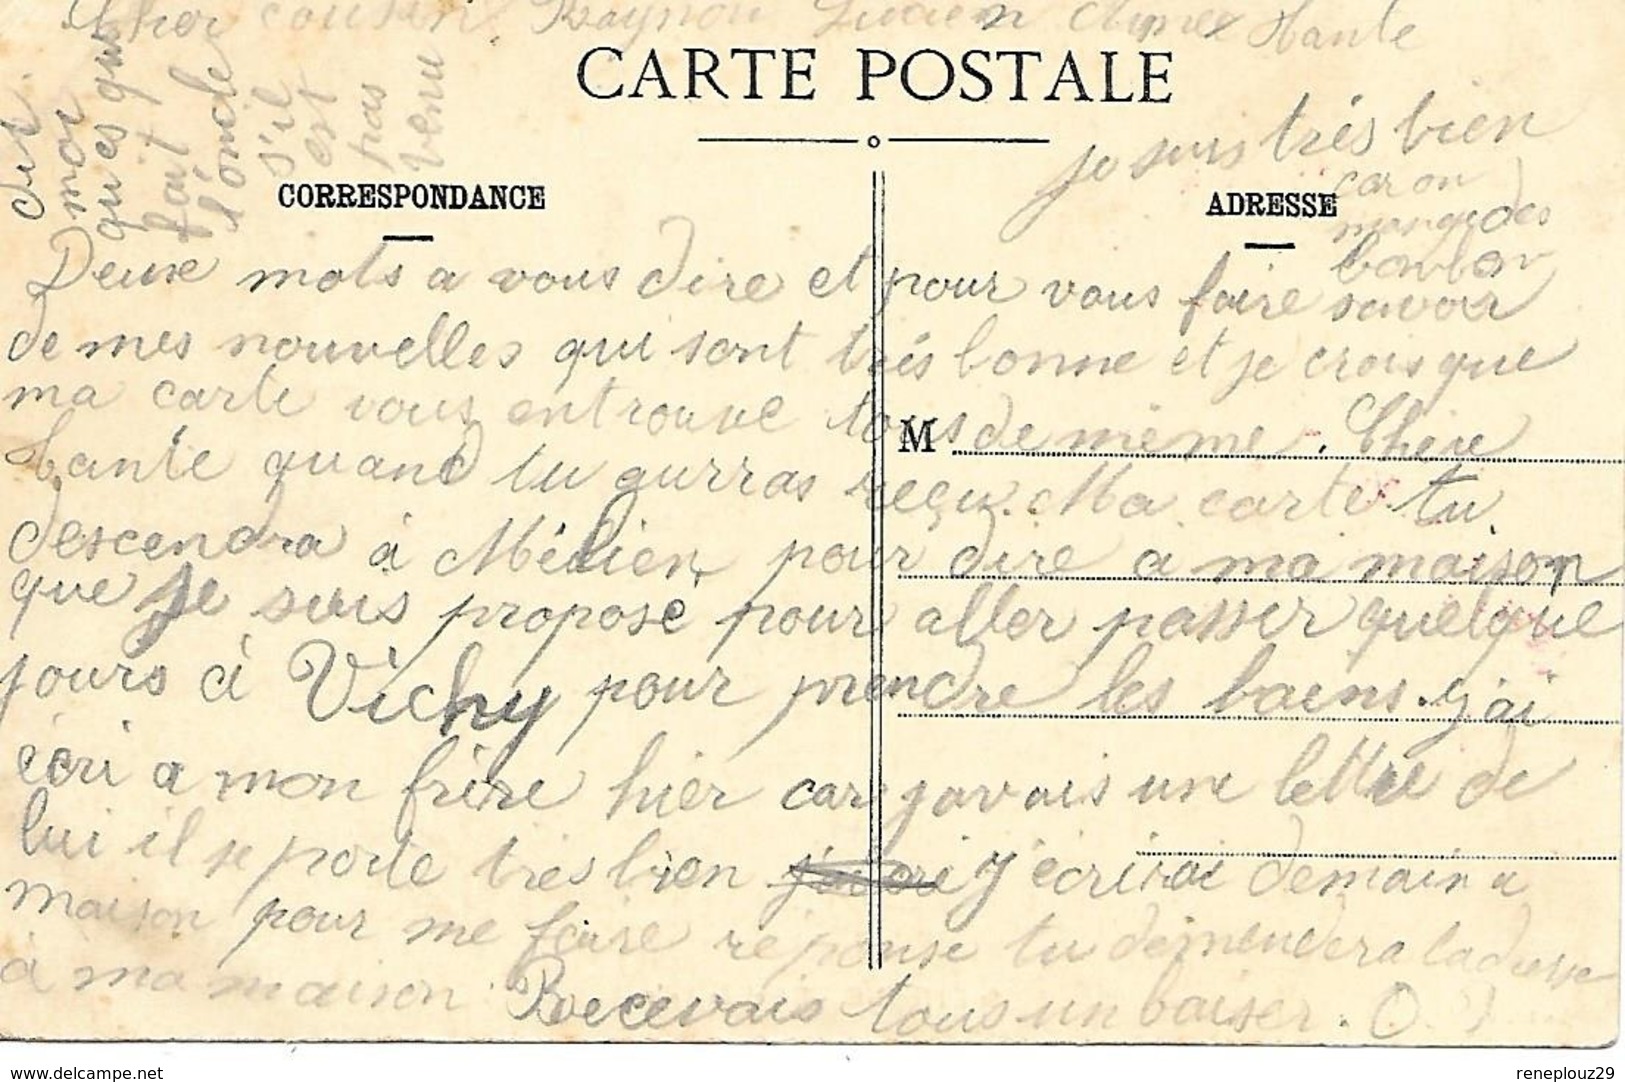 Cher cousin Raynon Lucien Aimée Tante
CARTE POSTALE
je suis très bien
car on
mange des
bonbon
dit
moi
qu es que
fait
l'oncle
s'il
est
pas
venu
CORRESPONDANCE
ADRESSE
Deuse mots a vous dire et pour vous faire savoir
de mes nouvelles qui sont très bonne et je crois que
ma carte vous entrouve tous de même. Chère
M
tante quand tu aurras reçu. Ma carte tu
descendra à pour dire a ma maison
que Je suis proposé pour aller passer quelque
jours à Vichy pour prendre les bains. J'ai
écri a mon frère hier car javais une lettre de
lui il se porte très bien J'écrirai demain a
maison pour me faire reponse tu demendera ladresse
à ma maison Recevais tous un baiser.
www.delcampe.net
reneplouz29